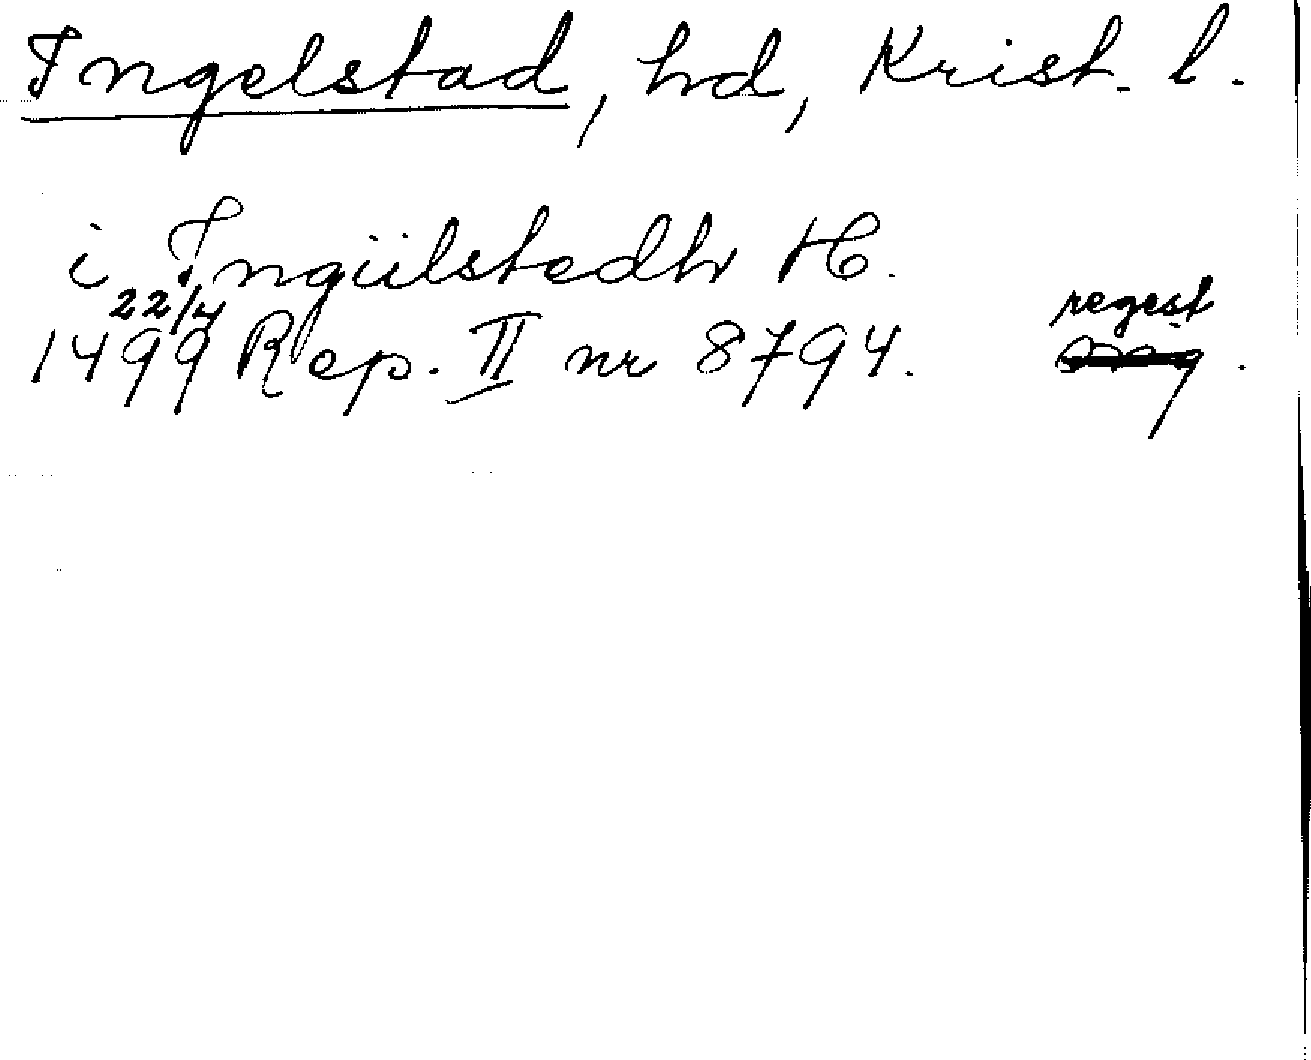 Ingelstad, hd, Krist. l.
i Ingülstedh H.
22/4 regest
1499 Rep. II nr 8794. .